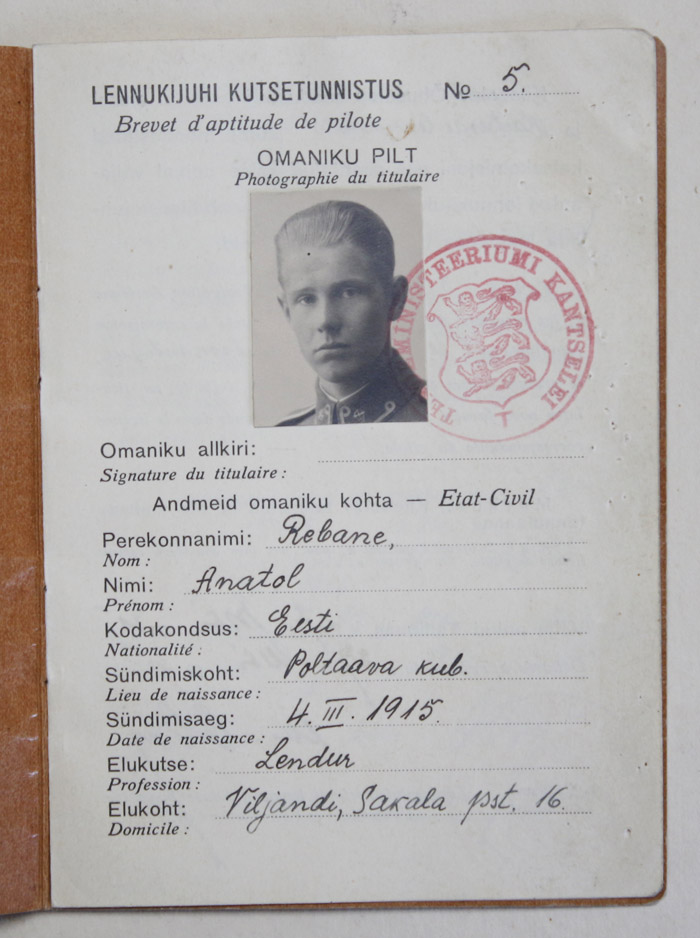 LENNUKIJUHI KUTSETUNNISTUS № 5.
Brevet d'aptitude de pilote
OMANIKU PILT
Photographie du titulaire
MINISTEERIUMI KANTSELEI
T
Omaniku allkiri:
Signature du titulaire :
Andmeid omaniku kohta — Etat-Civil
Perekonnanimi: Rebane,
Nom :
Nimi: Anatol
Prénom :
Kodakondsus: Eesti
Nationalité :
Sündimiskoht: Poltaava kub.
Lieu de naissance :
Sündimisaeg: 4. III. 1915.
Date de naissance :
Elukutse: Lendur
Profession :
Elukoht: Viljandi, Sakala pst. 16.
Domicile :